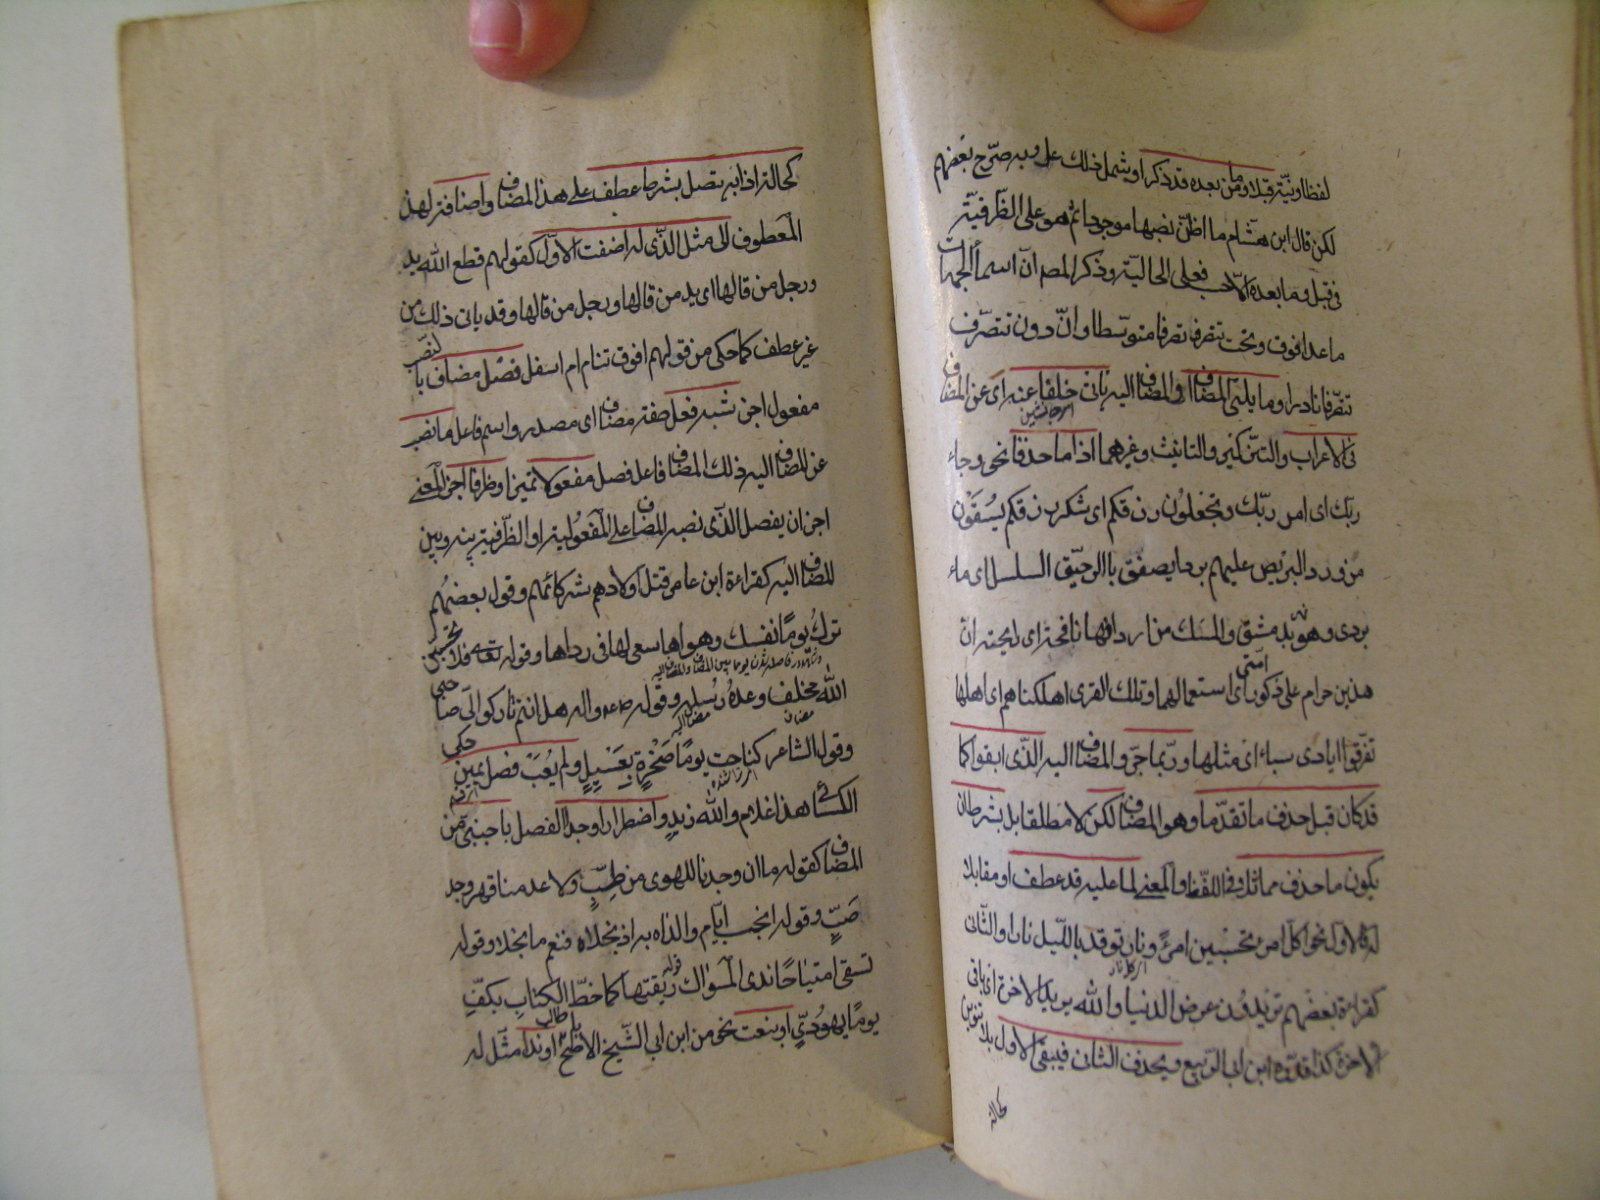 لفظا ونيّة قبلا وما من بعده قد ذكرا ويشمل ذلك عل وبه صرّح بعضهم
لكن قال ابن هشام ما اظنّ نصبها موجودا ثم هو على الظّرفيّة
في قبل وما بعده الا حسب فعلى الحاليّة وذكر المص انّ اسماء الجهات
ما عدا فوق وتحت تتصرّف تصرفا متوسّطا وانّ دون تتصّرف
تصّرفا نادرا وما يلى المضاف اى المضاف اليه ياتى خلفا عنه اى عن المضاف
فى الاعراب والتذكير والتانيث وغيرهما اذا ما حذفا نحو وجاء
ربّك اى امر ربّك وتجعلون رزقكم اى شكر رزقكم يسقون
من ورد البريص عليهم بردا يصفّق باالرحيق السلسل اى ماء
بردى وهو نهر بدمشق والمسك من اردانها نافحة اى رايحته ان
هذين حرام على ذكور امّتى اى استعمالهما وتلك القرى اهلكناهم اى اهلها
تفرّقوا ايادى سباء اى مثلها وربّما جرّوا المضاف اليه الذّى ابقوا كما
قد كان قبل حذف ما تقدّما وهو المضاف لكن لا مطلقا بل بشرط ان
يكون ما حذف مماثلا فى اللّفظ والمعنى لما عليه قد عطف او مقابلا
له فالاول نحو اكلّ امرء تحسبين امرءً ونار توقد بالليل نارا والثّانى
كقراءة بعضهم تريدون عرض الدنيا والله يريد الاخرة اى باقى
الاخرة كذا قدّره ابن ابى الربيع ويحذف الثانى فيبقى الاول بلا تنوين
كحاله
كحاله اذا به يتصل بشرط عطف على هذا المضاف واضافة لهذا
المعطوف الى مثل الذّى له اضفت الاوّل كقولهم قطع الله يد
ورجل من قالها اى يد من قالها ورجل من قالها وقد ياتى ذلك من
غير عطف كما حكى من قولهم افوق تنام ام اسفل فصل مضاف
مفعول اجز شبه فعل صفة مضاف اى مصدر واسم فاعل ما نصب
عن المضاف اليه ذلك المضاف فاعل فصل مفعولا تميز او ظرفا اجز المعنى
اجز ان يفصل الذّى نصبه المضاف على المفعوليته او الظّرفيته بينه وبين
المضاف اليه كقراءة ابن عامر قتل اولادهم شركائهم وقول بعضهم
ترك يومًا نفسك وهواها سعى لها فى رداها وقوله تعالى فلا تحسبنّ
الله مخلف وعده رسله وقوله والله هل انتم تاركوا لى صاحبى
وقول الشاعر كناحت يومًا صخرةٍ بعسيلٍ ولم يعب فصل يمين حكى
الكسائى هذا غلام والله زيدٍ واضطرارا وجدا الفصل باجنبىّ من
المضاف كقوله ما ان وجدنا للهوى من طبٍّ ولا عدمنا قهر وجد
صبٍّ وقوله انجب ايّام والداه به اذ نجلاه فنعم ما نجلا وقوله
تسقى امتياحًا ندى المسواك ريقتها كما خطّ الكتاب بكفّ
يومًا يهودىٍّ او بنعت نحو من ابن ابى الشّيخ الاطح طالب او ندا مثّل له